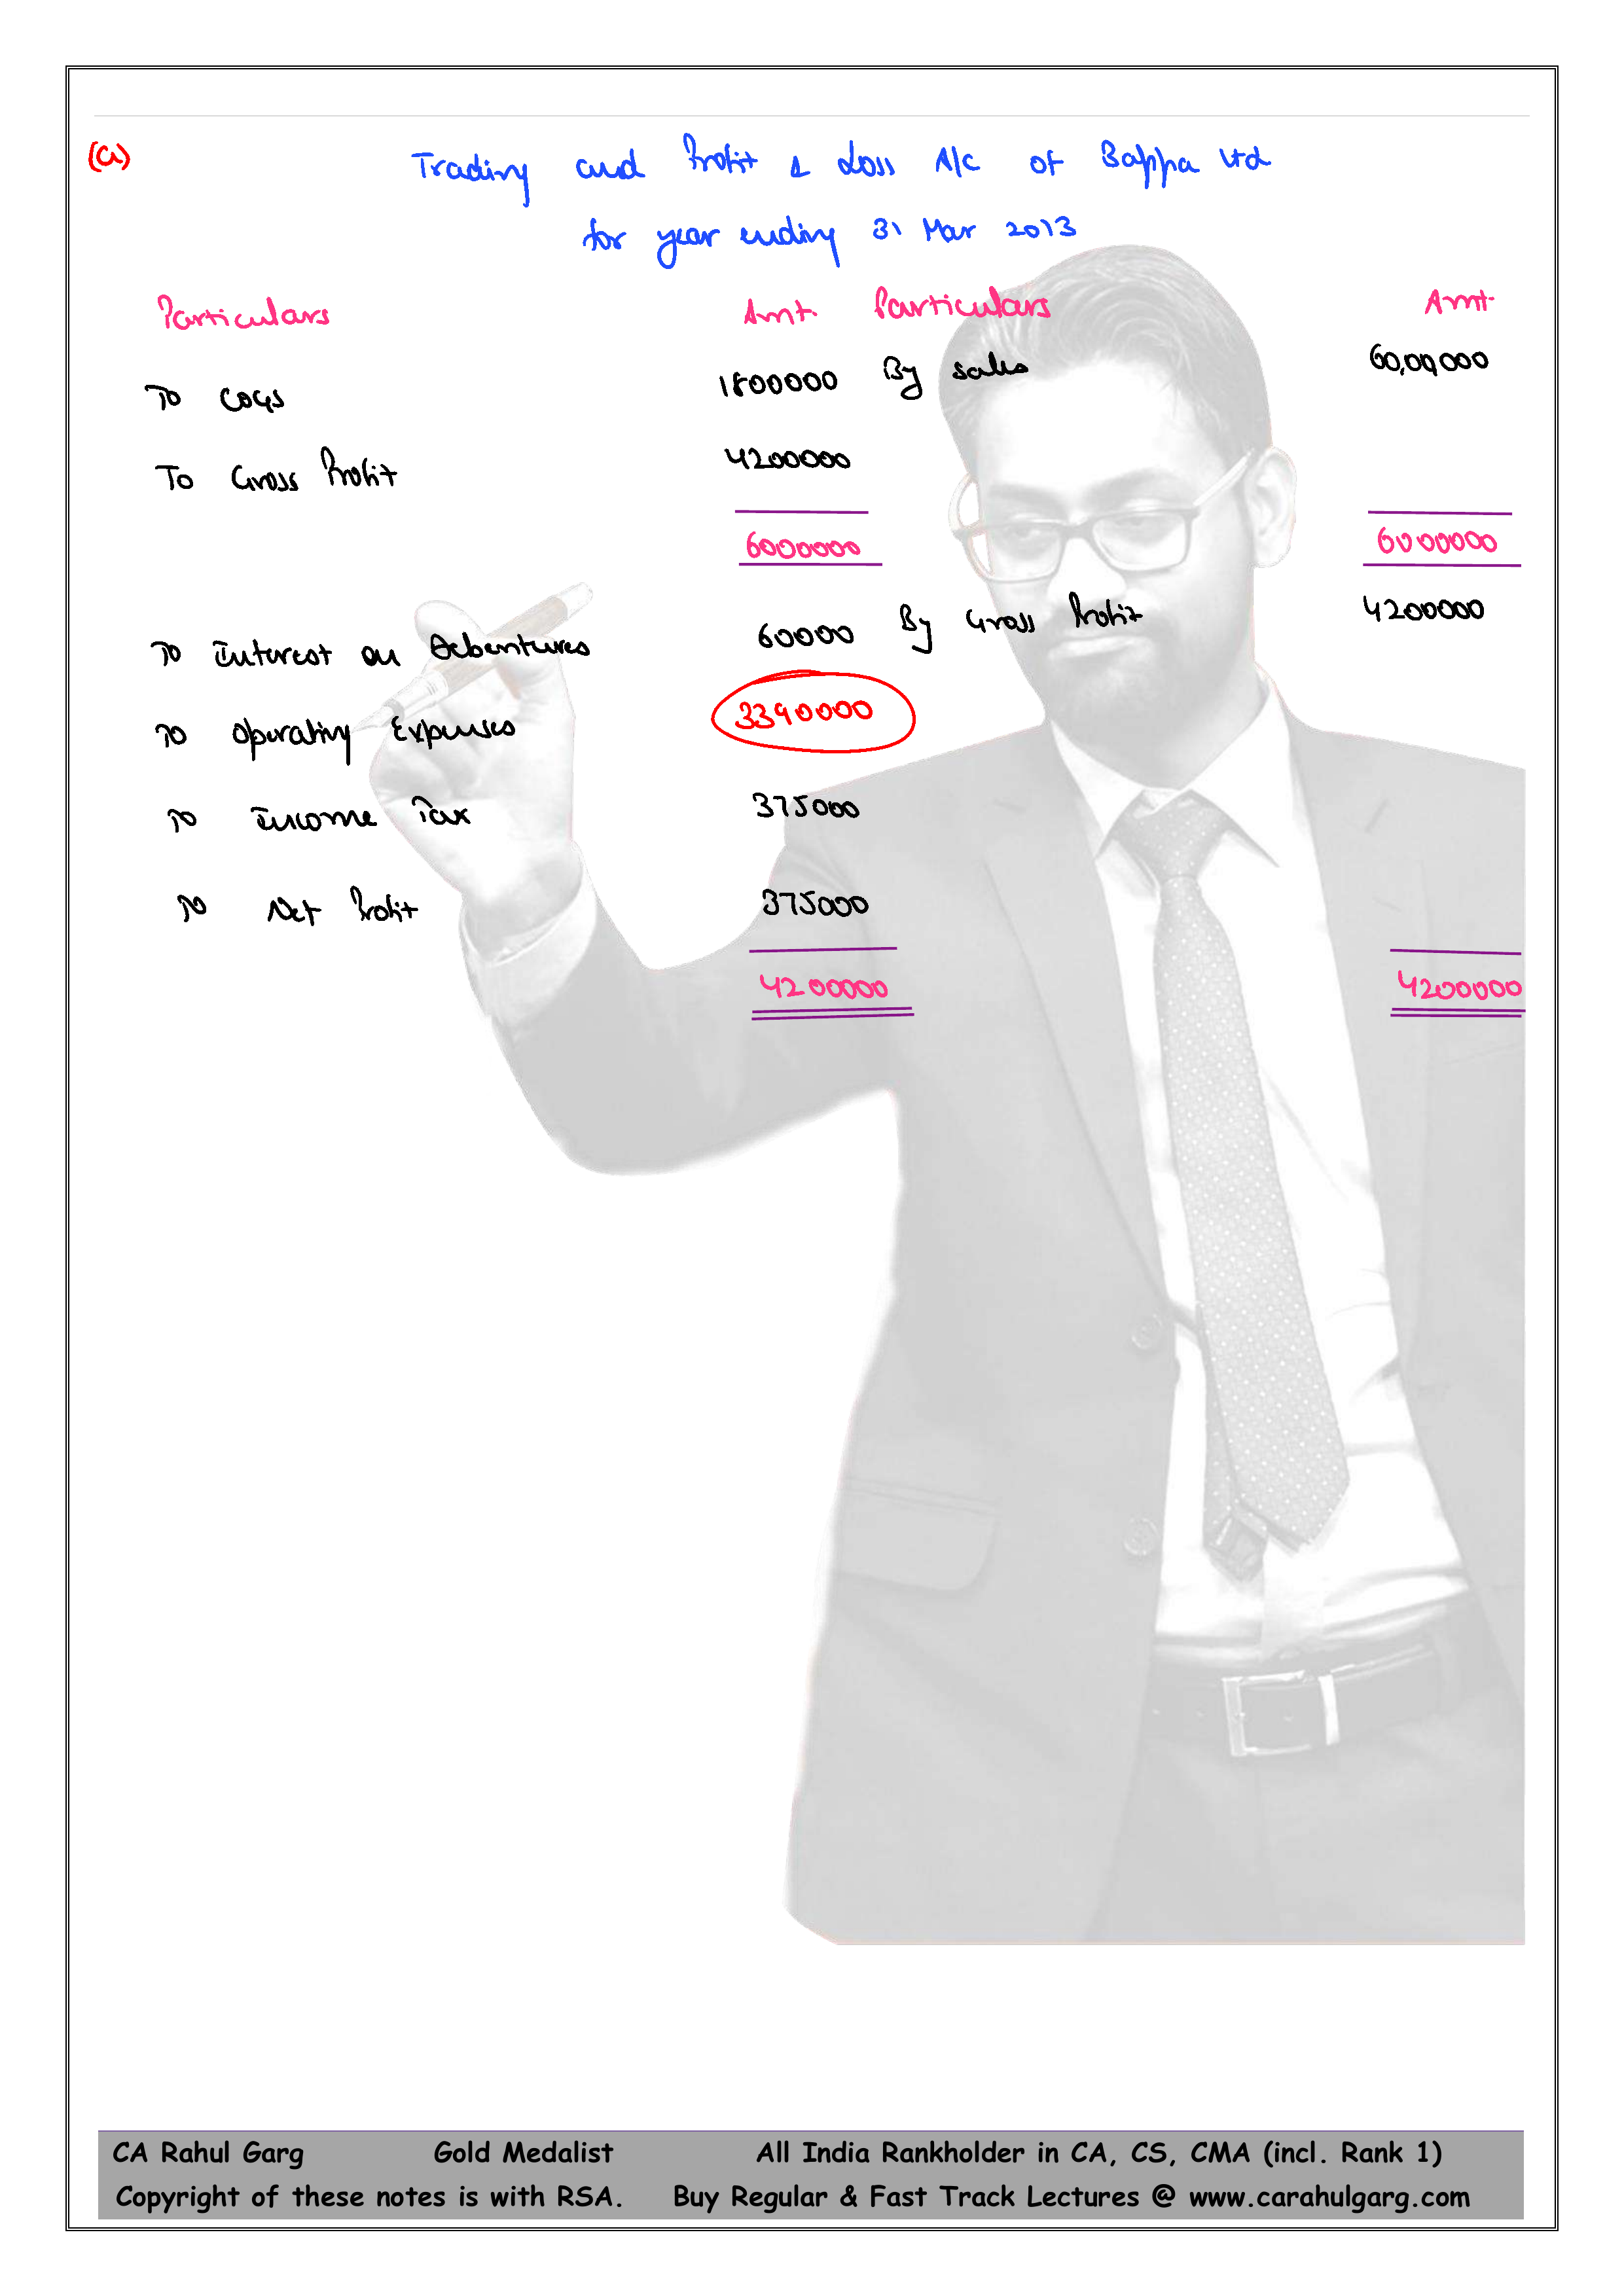 (a)
Trading and Profit & Loss A/c of Bappa Ltd
for year ending 31 Mar 2013
Particulars Amt Particulars Amt
To COGS 1800000 By Sales 60,00,000
To Gross Profit 4200000
6000000 6000000
To Interest on Debentures 60000 By Gross Profit 4200000
To Operating Expenses 3390000
To Income Tax 375000
To Net Profit 375000
4200000 4200000
CA Rahul Garg Gold Medalist All India Rankholder in CA, CS, CMA (incl. Rank 1)
Copyright of these notes is with RSA. Buy Regular & Fast Track Lectures @ www.carahulgarg.com